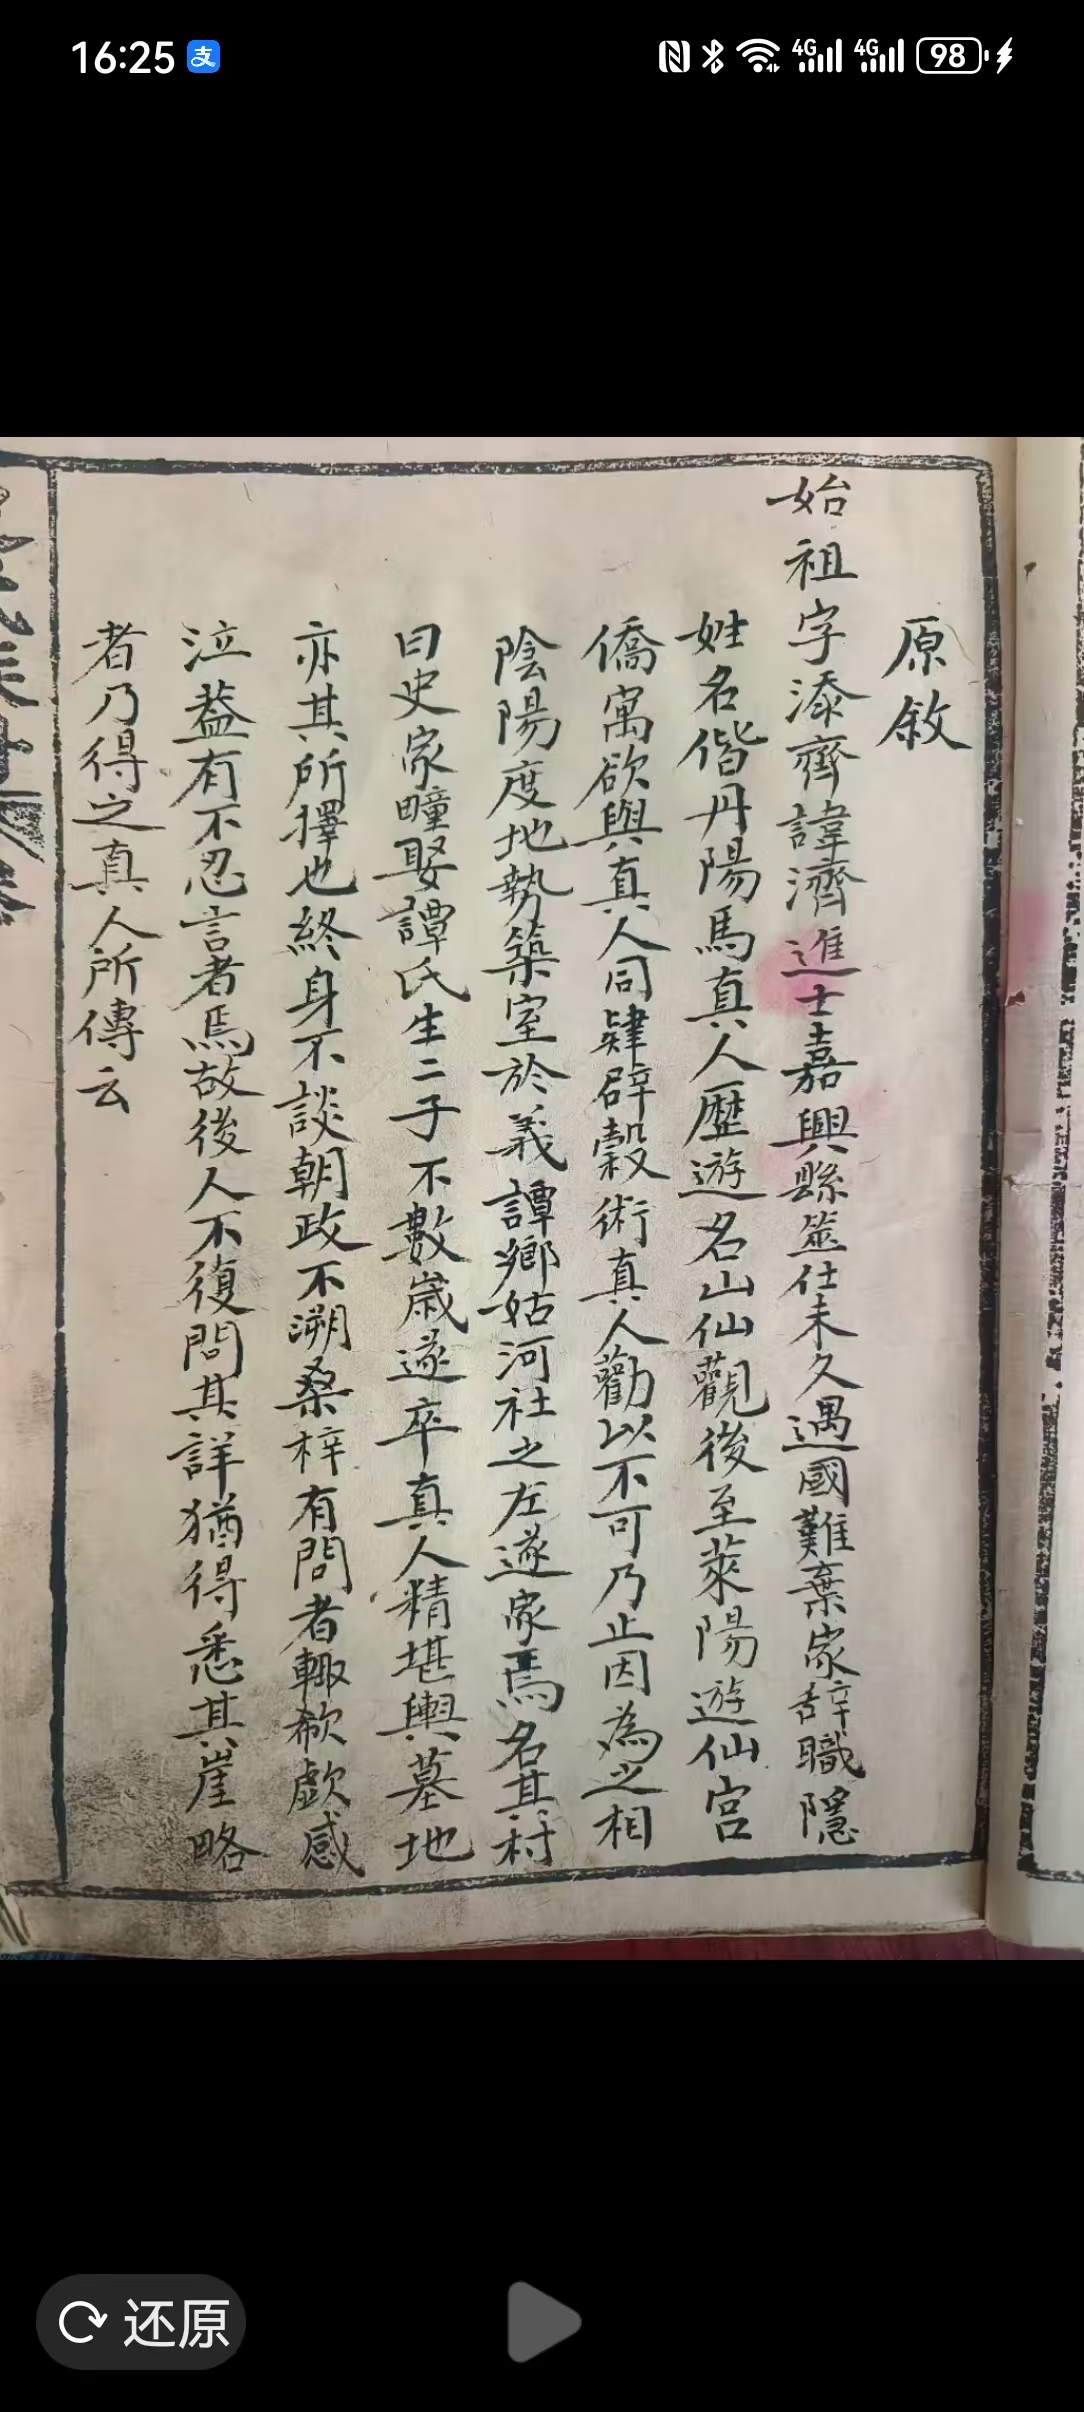 16:25
4G 4G 98
原敘
始祖字添齊諱濟進士嘉興縣筮仕未久遇國難棄家辞職隱
姓名偕丹陽馬真人歷遊名山仙觀後至萊陽遊仙宮
僑寓欲與真人同肄辟穀術真人勸以不可乃止因為之相
陰陽度地勢築室於義譚鄉姑河社之左遂家焉名其村
曰史家疃娶譚氏生二子不數歲遂卒真人精堪輿墓地
亦其所擇也終身不談朝政不溯桑梓有問者輙欷歔感
泣葢有不忍言者焉故後人不復問其詳猶得悉其崖略
者乃得之真人所傳云
还原